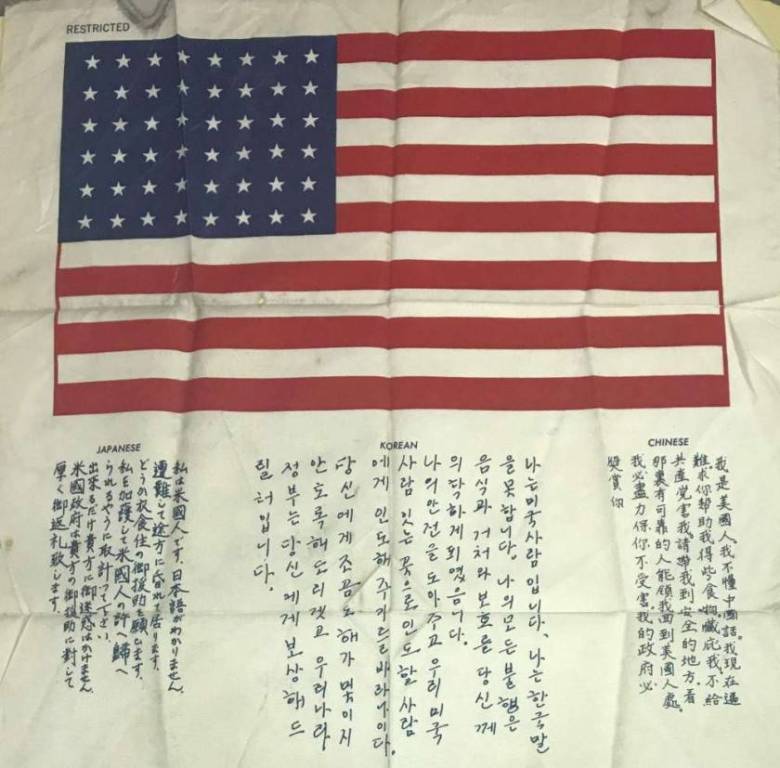 RESTRICTED
JAPANESE
私は米國人です。日本語がわかりません。
遭難して途方に昏れて居ります。
どうか衣食住の御援助を願ひます。
私を加護して米國人の許へ歸へ
られるやうに取計つて下さい。
出來るだけ貴方に御迷惑はかけません。
米國政府は貴方の御援助に對して
厚く御返礼致します。
KOREAN
나는 미국사람 입니다. 나는 한국말
을 못합니다. 나의 모든 불행은
음식과 거처와 보호를 당신께
의탁하게되엿음니다.
나의안전을 도아주고 우리 미국
사람 잇는 곳으로 인도할 사람
에게 인도해 주기를 바라나이다.
당신에게 조곰도 해가 및이지
안토록 해드리겟고 우리나라
정부는 당신에게 보상해 드
릴 터입니다.
CHINESE
我是美國人。我不懂中國話。我現在遇
難。求你幫助我得些食物。藏庇我。不給
共產党害我。請帶我到安全的地方。看
那裏有可靠的人能領我回到美國人處。
我必盡力保你不受害。我的政府必
獎賞你